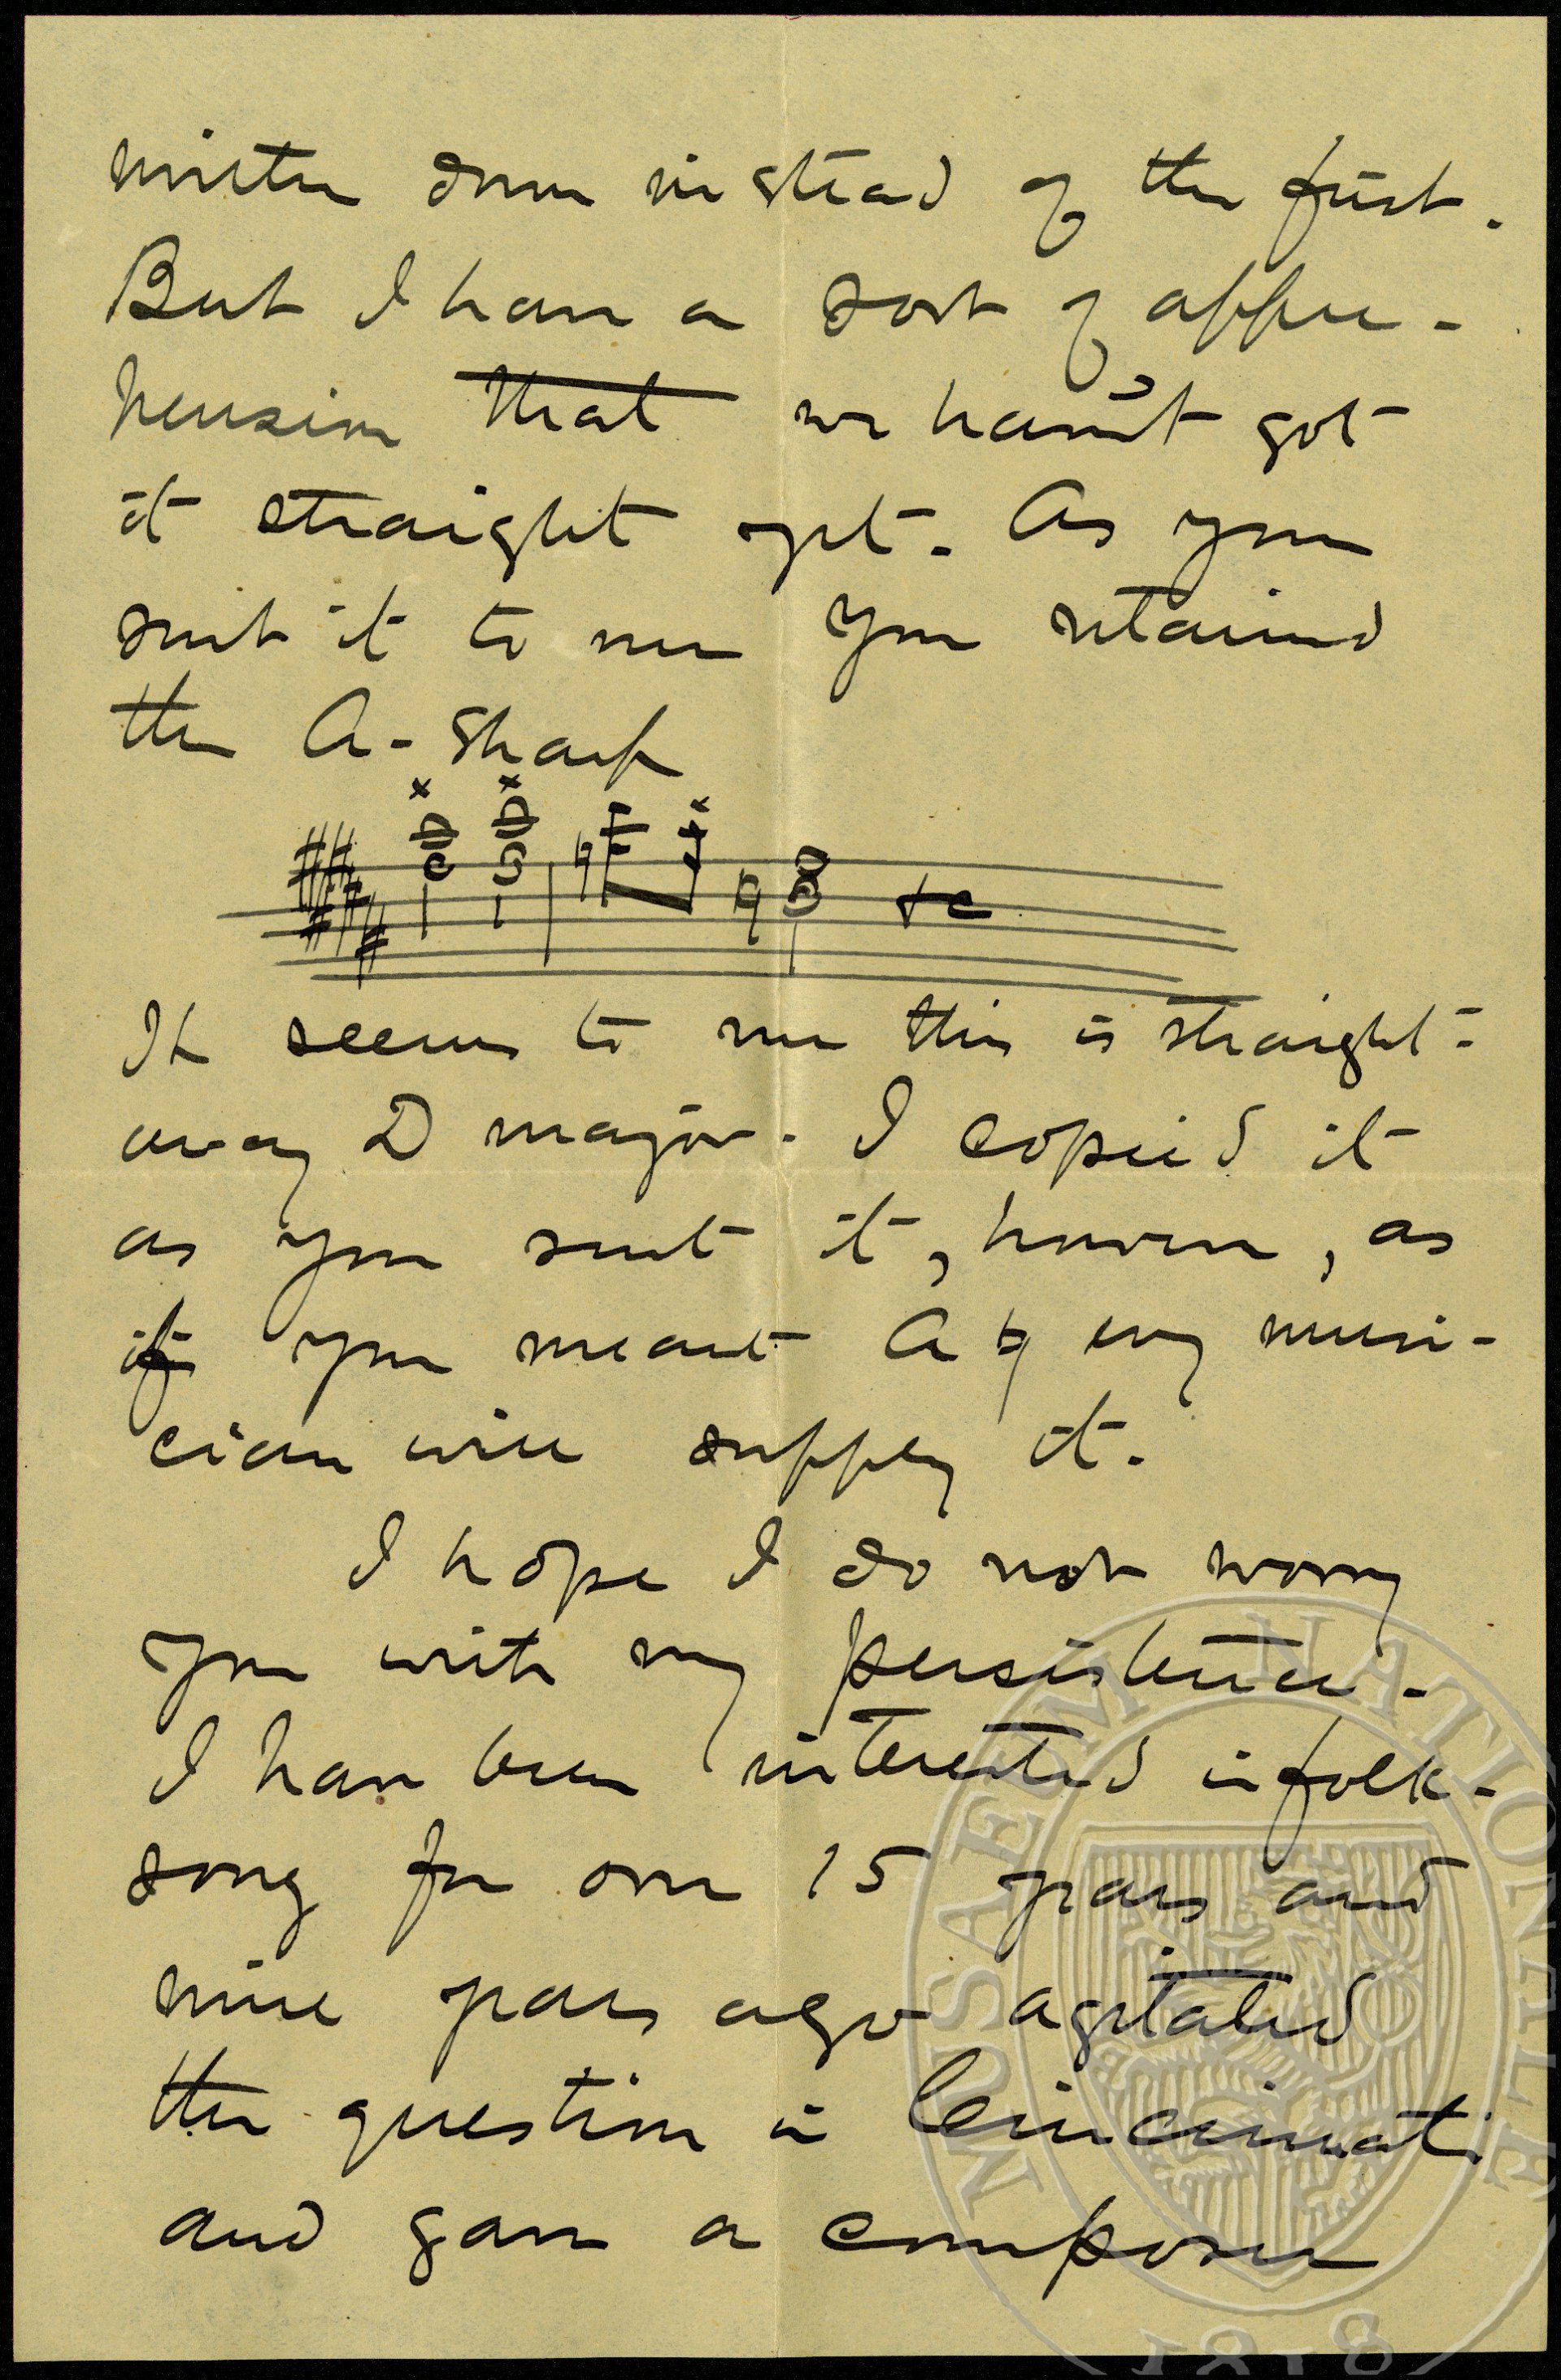 written down instead of the first.
But I have a sort of appre-
hension that we haven't got
it straight yet. As you
sent it to me you retained
the A-sharp
x x x
etc
It seems to me this is straight-
away D major. I copied it
as you sent it, however, as
if you meant A♮ every musi-
cian will supply it.
I hope I do not worry
you with my persistence.
I have been interested in folk-
song for over 15 years and
nine years ago agitated
the question in Cincinnati
and gave a composer
MUSAEUM NATIONALE
1818